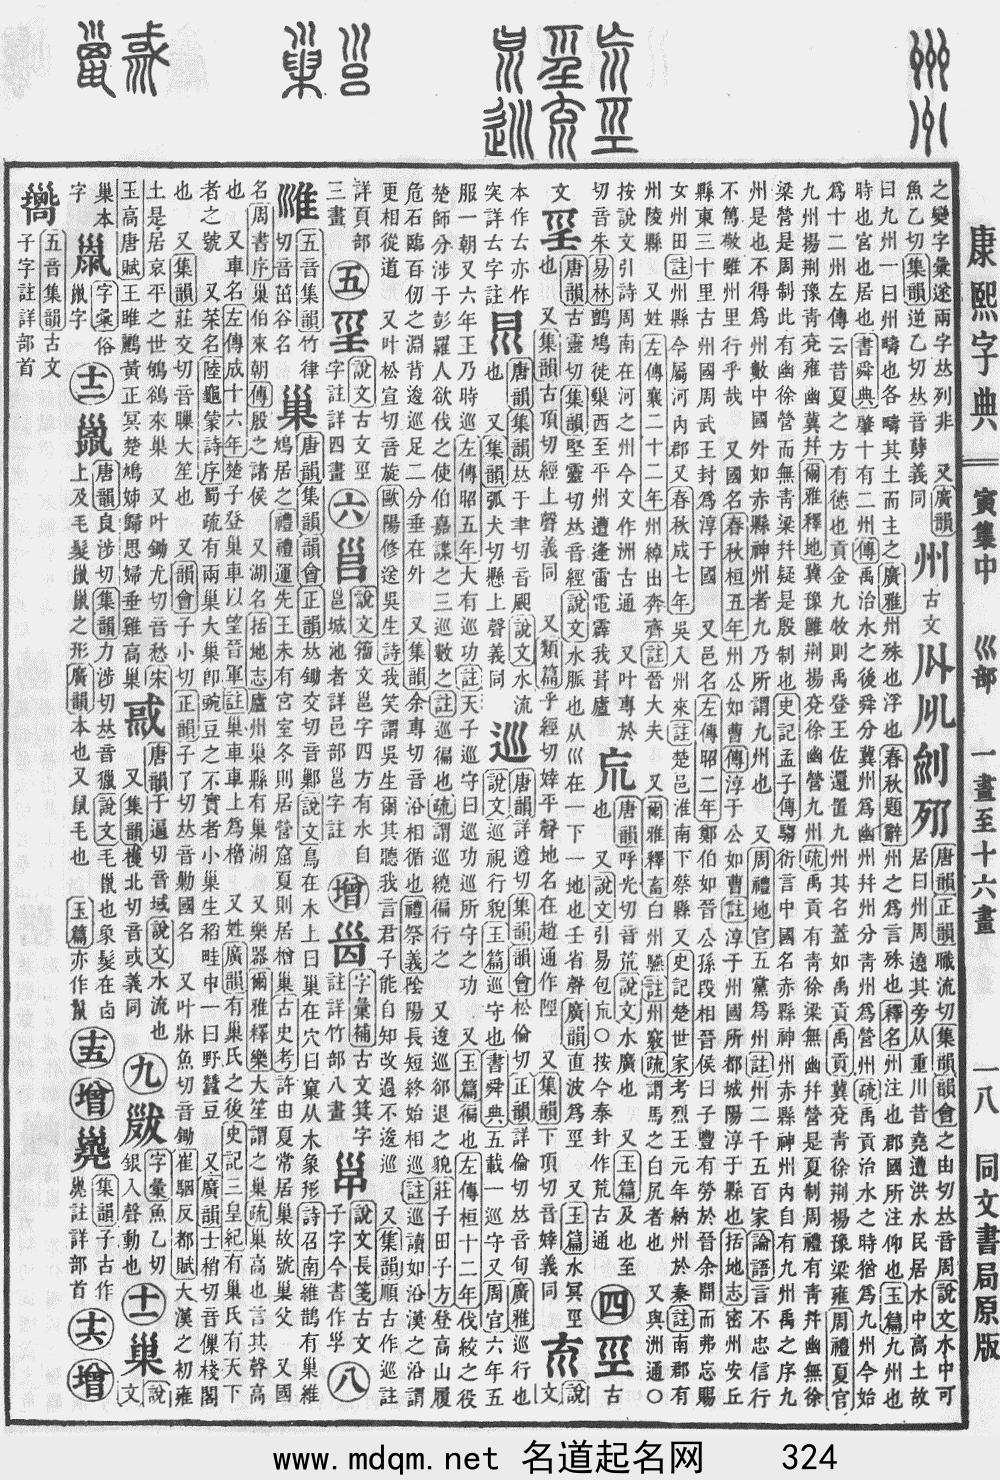 康熙字典 寅集中 巛部 一畫至十六畫 一八 同文書局原版
之變字彙逐兩字𠀤列非 又廣韻
魚乙切集韻逆乙切𠀤音㔎義同
州 古文
唐韻正韻職流切集韻韻會之由切𠀤音周說文水中可
居曰州周遶其旁从重川昔堯遭洪水民居水中高土故
曰九州一曰州疇也各疇其土而主之廣雅州殊也浮也春秋題辭州之爲言殊也釋名州注也郡國所注仰也玉篇九州也
時也宮也居也書舜典肇十有二州傳禹治水之後舜分冀州爲幽州幷州分靑州爲營州疏禹貢治水之時猶爲九州今始
爲十二州左傳云昔夏之方有德也貢金九牧則禹登王佐還置九州其名蓋如禹貢禹貢冀兗靑徐荆揚豫梁雍周禮夏官
九州揚荆豫靑兗雍幽冀幷爾雅釋地冀豫雝荆揚兗徐幽營九州疏禹貢有靑徐梁無幽幷營是夏制周禮有靑幷幽無徐
梁營是周制此有幽徐營而無靑梁幷疑是殷制也史記孟子傳騶衍言中國名赤縣神州赤縣神州內自有九州禹之序九
州是也不得爲州數中國外如赤縣神州者九乃所謂九州也 又周禮地官五黨爲州註州二千五百家論語言不忠信行
不篤敬雖州里行乎哉 又國名春秋桓五年州公如曹傳淳于公如曹註淳于州國所都城陽淳于縣也括地志密州安丘
縣東三十里古州國周武王封爲淳于國 又邑名左傳昭二年鄭伯如晉公孫段相晉侯曰子豐有勞於晉余聞而弗忘賜
女州田註州縣今屬河內郡又春秋成七年吳入州來註楚邑淮南下蔡縣又史記楚世家考烈王元年納州於秦註南郡有
州陵縣 又姓左傳襄二十二年州綽出奔齊註晉大夫 又爾雅釋畜白州驠註州竅疏謂馬之白尻者也 又與洲通○
按說文引詩周南在河之州今文作洲古通 又叶專於
切音朱易林鸇鳩徙巢西至平州遭逢雷電霹我葺廬
巟
唐韻呼光切音荒說文水廣也 又玉篇及也至
也 又說文引易包巟○按今泰卦作荒古通
四
巠 古文 坙
唐韻古靈切集韻堅靈切𠀤音經說文水脈也从巛在一下一地也壬省聲廣韻直波爲巠 又玉篇水冥巠
也 又集韻古頂切經上聲義同 又類篇乎經切娙平聲地名在趙通作陘 又集韻下頂切音婞義同
㐬
說文本作𠫓亦作
突詳𠫓字註
唐韻集韻𠀤于聿切音䬂說文水流
也 又集韻弧犬切懸上聲義同
巡
唐韻詳遵切集韻韻會松倫切正韻詳倫切𠀤音旬廣雅巡行也
說文巡視行貌玉篇巡守也書舜典五載一巡守又周官六年五
服一朝又六年王乃時巡左傳昭五年大有巡功註天子巡守曰巡功巡所守之功 又玉篇徧也左傳桓十二年伐絞之役
楚師分涉于彭羅人欲伐之使伯嘉諜之三巡數之註巡徧也疏謂巡繞徧行之 又逡巡郤退之貌莊子田子方登高山履
危石臨百仞之淵背逡巡足二分垂在外 又集韻余專切音沿相循也禮祭義隂陽長短終始相巡註巡讀如沿漢之沿謂
更相從道 又叶松宣切音旋歐陽修送吳生詩我笑謂吳生爾其聽我言君子能自知改過不逡巡 又集韻順古作巡註
詳頁部
三畫
五
說文古文巠
字註詳四畫
六
𡿶
說文籀文邕字四方有水自
邕城池者詳邑部邕字註
增
字彙補古文箕字
註詳竹部八畫
說文長箋古文
子字今書作孚
八
五音集韻竹律
切音茁谷名
巢
唐韻集韻韻會正韻𠀤鋤交切音鄛說文鳥在木上曰巢在穴曰窠从木象形詩召南維鵲有巢維
鳩居之禮禮運先王未有宮室冬則居營窟夏則居橧巢古史考許由夏常居巢故號巢父 又國
名周書序巢伯來朝傳殷之諸侯 又湖名括地志廬州巢縣有巢湖 又樂器爾雅釋樂大笙謂之巢疏巢高也言其聲高
也 又車名左傳成十六年楚子登巢車以望晉軍註巢車車上爲櫓 又姓廣韻有巢氏之後史記三皇紀有巢氏有天下
者之號 又菜名陸龜蒙詩序蜀疏有兩巢大巢卽豌豆之不實者小巢生稻畦中一曰野蠶豆 又廣韻士稍切音㑿棧閣
也 又集韻莊交切音䏆大笙也 又韻會子小切正韻子了切𠀤音勦國名 又叶牀魚切音鋤崔駰反都賦大漢之初雍
土是居哀平之世鴝鵒來巢 又叶鋤尤切音愁宋
玉高唐賦王雎鸝黃正冥楚鳩姊歸思婦垂雞高巢
唐韻于逼切音域說文水流也
又集韻檴北切音或義同
九
字彙魚乙切
銀入聲動也
十一
巢
說文
巢本
字
字彙俗
巤字
十二
巤
唐韻良涉切集韻力涉切𠀤音獵說文毛巤也象髮在囟
上及毛髮巤巤之形廣韻本也又鼠毛也 玉篇亦作鬣
十五
增
集韻子古作
註詳部首
十六
增
五音集韻古文
子字註詳部首
www.mdqm.net 名道起名网 324